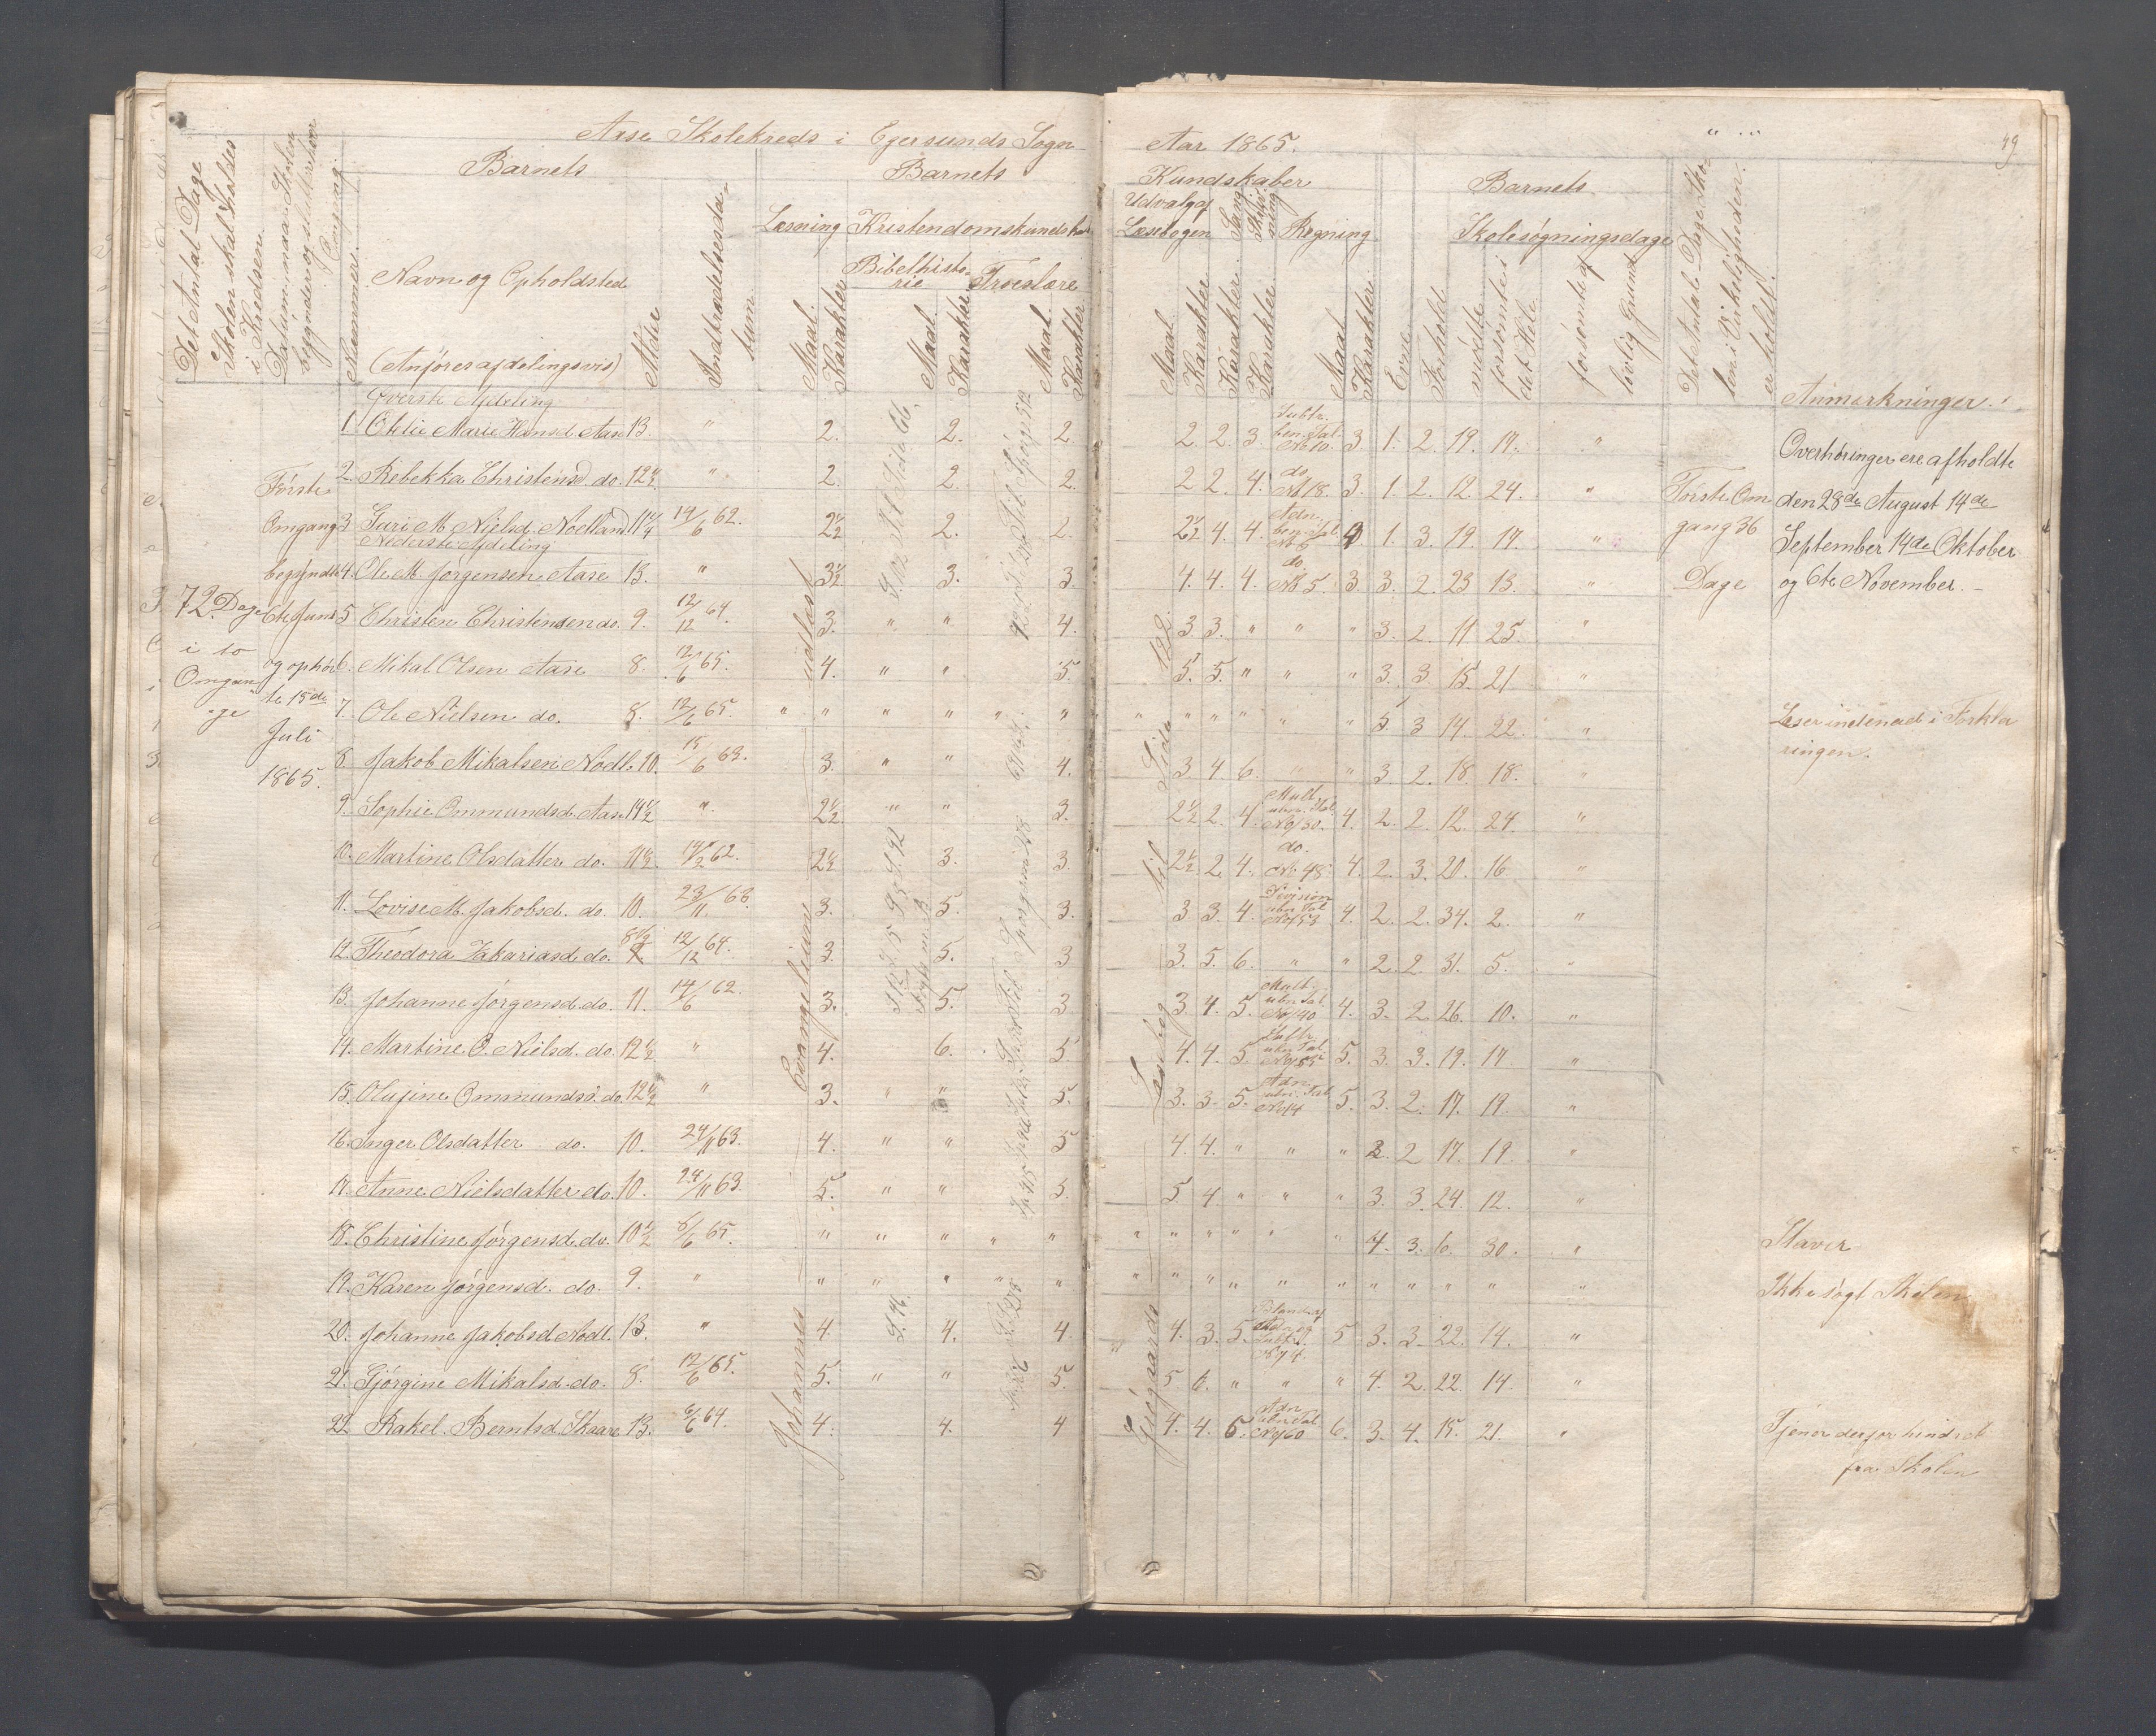 Aase Skolekreds i Egersunds Sogn Aar 1865. 49
Det Antal Dage Skolen skal holdes i Kredsen.
Datum, naar Skolen begynder og slutter
Nummer.
Barnets
Navn og Opholdsted
(Anføres afdelingsvis)
Alder
Indtrædelsesdatum.
Barnets Kundskaber
Læsning
Maal. Karakter
Kristendomskundskab
Bibelhistorie
Maal. Karakter
Troeslære
Maal. Karakter
Udvalg af Læsebogen
Maal. Karakter
Sang Karakter.
Skrivning Karakter.
Regning
Maal Karakter
Evne.
Forhold.
Barnets Skolesøgningsdage
mødte
forsømte i det Hele.
forsømte af lovlig Grund
Det Antal Dage Skolen i Virkeligheden er holdt.
Anmærkninger.
72 Dage i to Omgange
Første Omgang begyndte 6te Juni og ophørte 15de Juli 1865.
Øverste Afdeling
1. Othie Marie Hansd. Aase 13. " 2. 2. 2. 2. 2. 3. Subtr. ben. Tal No 10. 3. 1. 2. 19. 17. "
2. Rebekka Christensd. do. 12 1/2. " 2. 2. 2. 2 2. 4. do No 18. 3. 1. 2. 12. 24. "
3 Juri M. Nielsd. Nodland 11 1/4 14/6 62. 2 1/2 2. 2. 2 1/2 4. 4. Adn. ben. Tal No 5 4 1. 3. 19. 17. "
Nederste Afdeling
4. Ole M. Jørgensen Aase 13. " 3 1/2 3. 3. 4. 4. 4. do. No 5. 3. 3. 2. 23 13. "
5 Christen Christensen do. 9. 12/12 64. 3. " " 4. 3 3. " " " 3. 2. 11 25. "
6. Mikal Olsen Aase 8. 12/6 65. 4. " " 5. 5. 5. " " " 3. 3. 15. 21 "
7. Ole Nielsen do. 8. 12/6 65. " " " " " " " " " " " " 5. 3 14. 22. "
8. Jakob Mikalsen Nodl. 10. 15/6 63. 3. " " 4. 3. 4. 6. " " 3. 2. 18. 18. "
9. Sophie Ommundsd. Aase 14 1/2 " 2 1/2. " " 3. 2 1/2 2. 4. Mult. ubn. Tal No 30. 4. 2. 2. 12. 24. "
10. Martine Olsdatter do. 11 1/2. 14/2 62. 2 1/2 3. 3. 2 1/2 2. 4. do. No 48. 4. 2. 3. 20. 16 "
11. Lovise M. Jakobsd. do. 10. 23/11 63. 3. 5. 3. 3 3. 4. Division ubn. Tal No 53 4. 2. 2. 34. 2. "
12. Theodora Zakariasd. do. 8 1/2 12/12 64. 3. 5. 3 3. 5. 6. " " 2. 2. 31. 5. "
13. Johanne Jørgensd. do. 11. 14/6 62. 3. 5. 3 3 4. 5. Mult. ubn. Tal No 40 4. 3. 2 26. 10. "
14. Martine O. Nielsd. do. 12 1/2 " 4. 6. 5. 4. 4. 5. Subtr. ubn. Tal 5. 3. 3. 19. 17 "
15. Olufine Ommundsd. do. 12 1/2 " 3. " " 5. 3. 3. 5. Adn. ubn. Tal No 14 5. 3. 2. 17. 19. "
16. Inger Olsdatter do. 10. 24/11 63. 4. " " 5 4. 4. " " " 2. 2 17. 19. "
17. Anne Nielsdatter do. 10. 24/11 63. 5. " " 5. 5 4 " " " 3. 3. 24. 12. "
18. Christine Jørgensd. do. 10 1/2 6/6 65. " " " " " " " " " " " 4. 3. 6. 30. " Staver
19. Karen Jørgensd. do. 9. " " " " " " " " " " " " " " " " " " Ikke søgt Skolen
20. Johanne Jakobsd. Nodl. 13. " 4. 4. 4. 4. 3. 5. 5 3. 3. 22. 14. "
21. Gjørgine Mikalsd. do. 8. 12/6 65. 5. " " 5. 5. 6. " " " 4. 2. 22. 14. "
22 Rakel Berntsd. Skaare 13. 6/6 64. 4. 4. 4 4. 4. 5. Adn. ubn Tal No 60 6. 3. 4. 15. 21. "
Evangelium
Johannes
udtbest.
S. 102 til Side 66.
S. 46.
Side 132.
Gjøgaards Læsebog til
Første Omgang 36 Dage
Overhøringer ere afholdte
den 28de August 14de
September 14de Oktober
og 6te November. -
Læser indenad i Forklaringen.
Tjener derfor hindret
fra Skolen